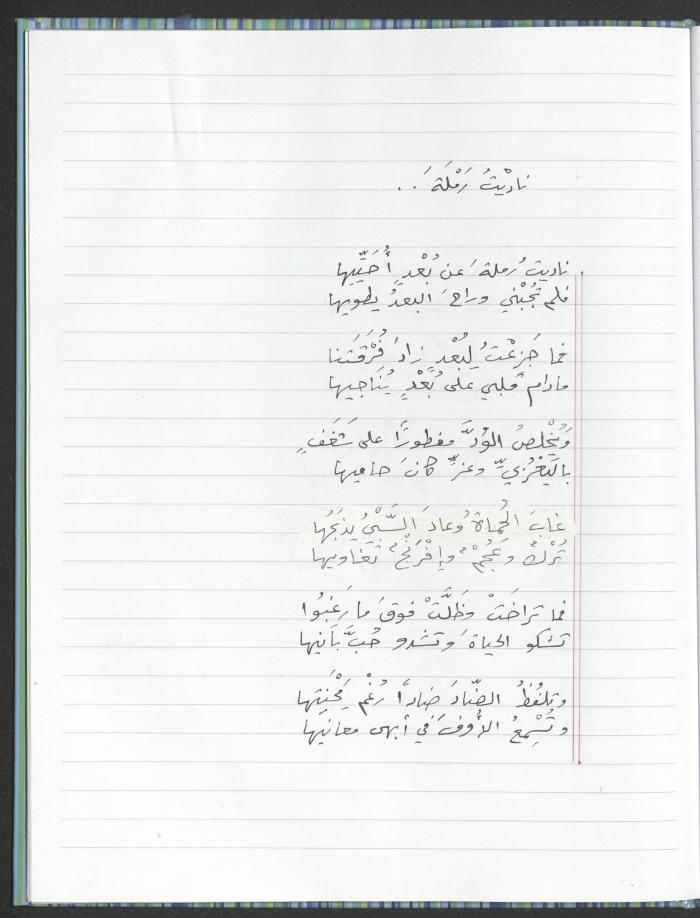 ناديتُ رَمْلَةَ ..
ناديتُ رملةَ عن بُعْدٍ أُحَيِّيها
فلم تُجُبْني وراحَ البعدُ يطويها
فما جَزِعْتُ لِبُعْدٍ زادَ فُرْقَتَنا
مادام قلبي على بُعْدٍ يُنَاجيها
وَيُخْلِصُ الوُدَّ مفطورًا على شَغَفٍ
وعزٍّ كانَ حاميها
غابَ الحُماةُ وعادَ السَّبْيُ يذبَحُها
تُرْكٌ وَعُجْمٌ وإِفْرَنْجٌ تُغاويها
فما تراخَتْ وظَلَّتْ فوقَ ما رَغِبُوا
تشكو الحياةَ وتشدو حُبَّ بَانيها
وتلفُظُ الضّادَ ضاداً رُغْمَ مِحْنَتِها
وتُسْمِعُ في أبهى معانيها